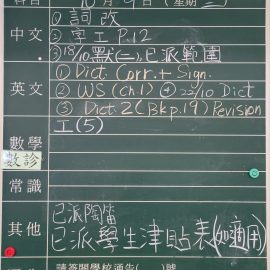 10月9日(星期三)
中文 ① 詞改
② 字工 P.12
③ 18/10 默(二),已派範圍
英文 ① Dict. Corr. + Sign.
② WS (ch.1) ④ 22/10 Dict
③ Dict. 2 (Bk p.19) Revision
數學 工(5)
數診
常識
其他 已派陶笛
已派學生津貼表(如適用)
請簽閱學校通告( )號